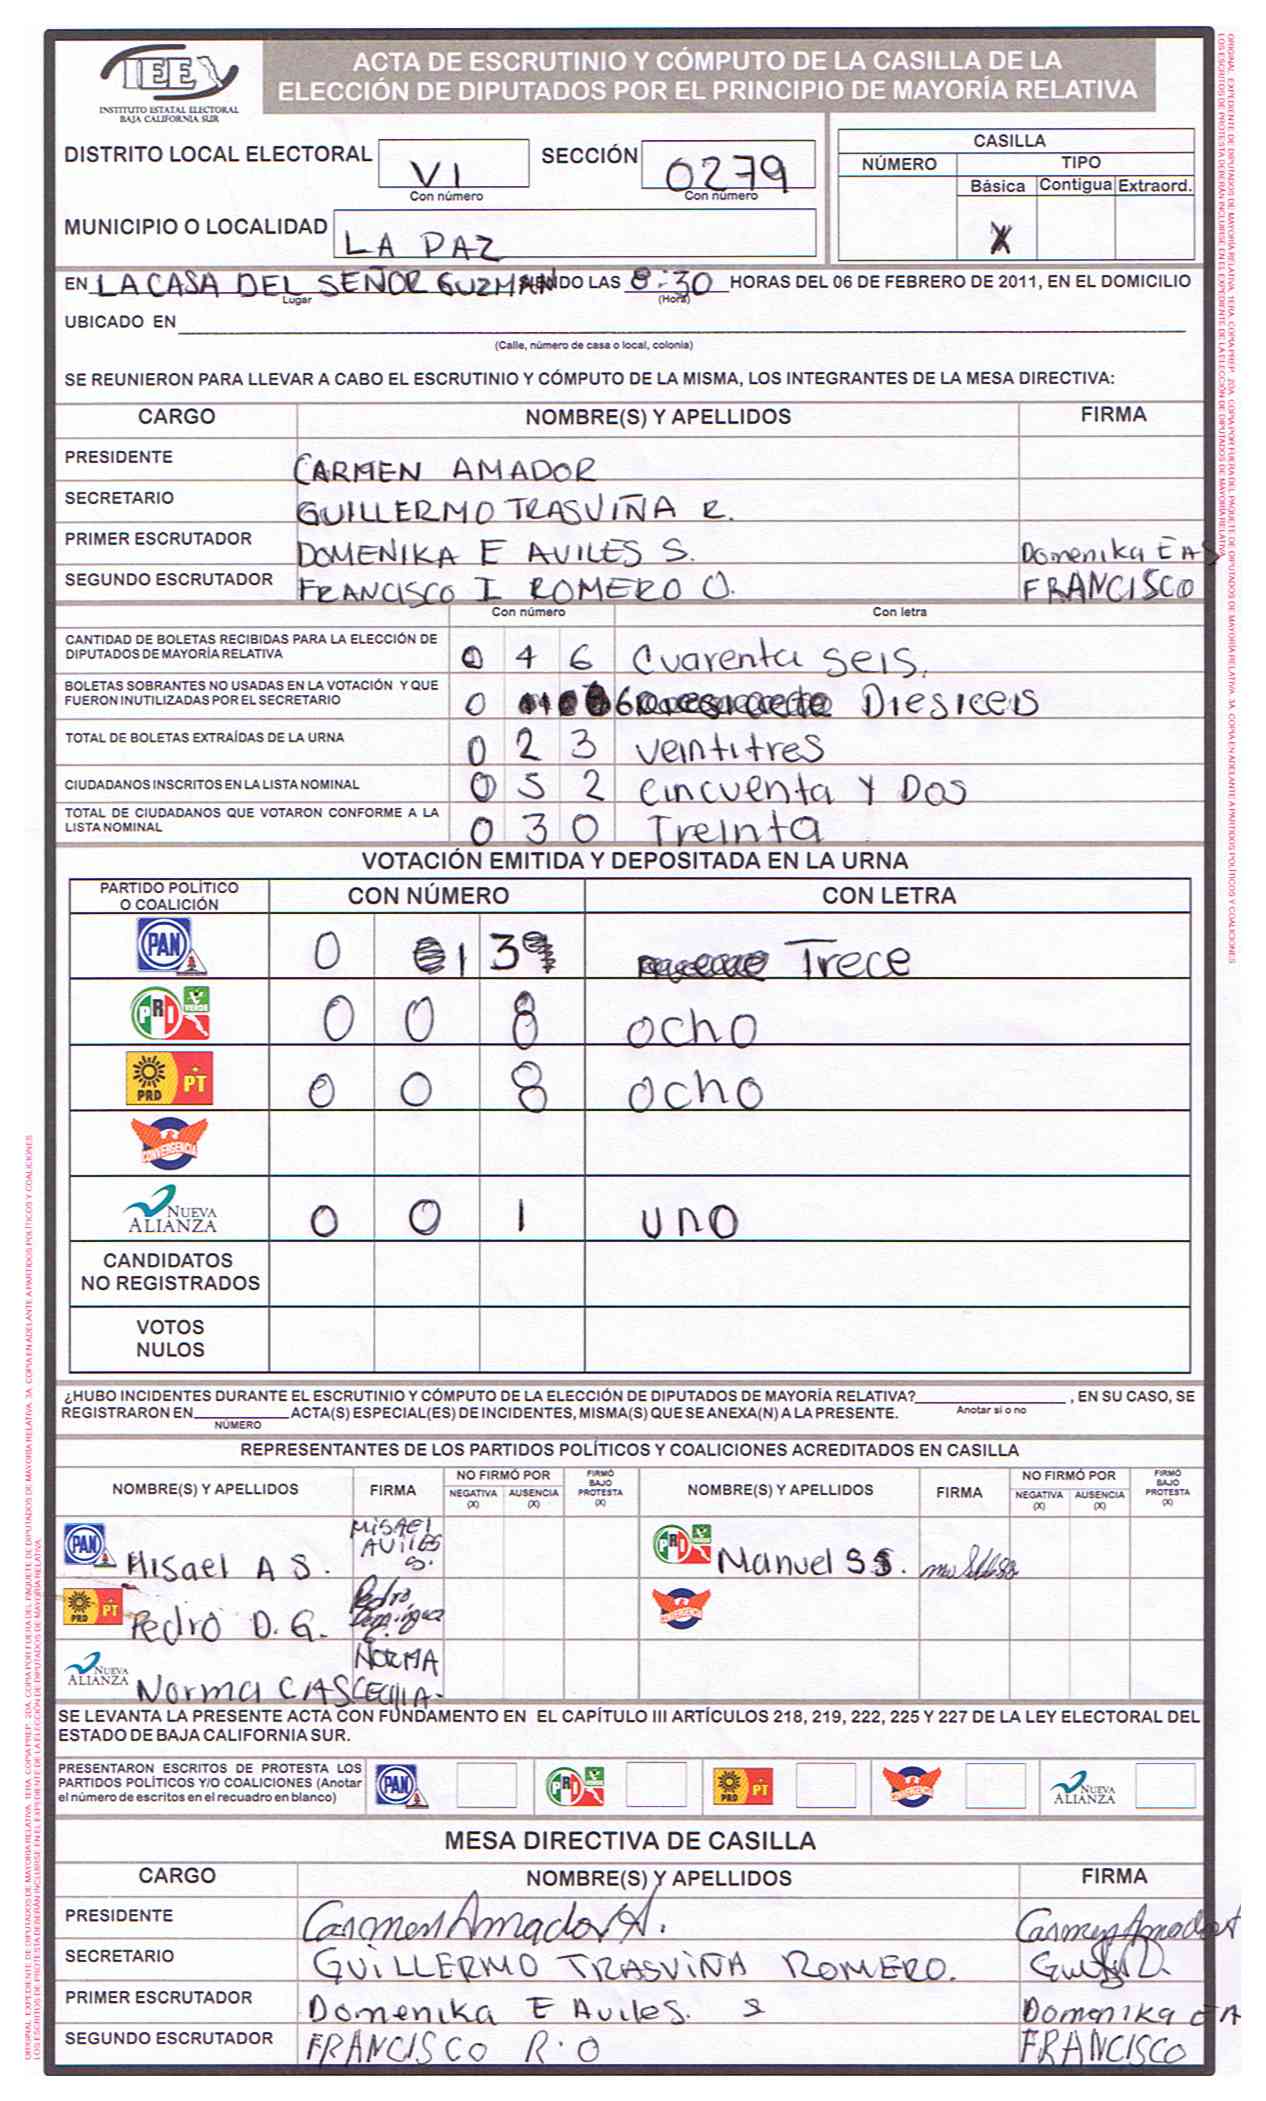 IEEX
INSTITUTO ESTATAL ELECTORAL
BAJA CALIFORNIA SUR
ACTA DE ESCRUTINIO Y CÓMPUTO DE LA CASILLA DE LA
ELECCIÓN DE DIPUTADOS POR EL PRINCIPIO DE MAYORÍA RELATIVA
DISTRITO LOCAL ELECTORAL VI SECCIÓN 0279
Con número Con número
CASILLA
NÚMERO TIPO
Básica Contigua Extraord.
X
MUNICIPIO O LOCALIDAD LA PAZ
EN LA CASA DEL SEÑOR GUZMAN SIENDO LAS 8:30 HORAS DEL 06 DE FEBRERO DE 2011, EN EL DOMICILIO
Lugar (Hora)
UBICADO EN
(Calle, número de casa o local, colonia)
SE REUNIERON PARA LLEVAR A CABO EL ESCRUTINIO Y CÓMPUTO DE LA MISMA, LOS INTEGRANTES DE LA MESA DIRECTIVA:
CARGO NOMBRE(S) Y APELLIDOS FIRMA
PRESIDENTE CARMEN AMADOR
SECRETARIO GUILLERMO TRASVIÑA R.
PRIMER ESCRUTADOR DOMENIKA E AVILES S. Domenika E A S
SEGUNDO ESCRUTADOR FRANCISCO I ROMERO O. FRANCISCO
Con número Con letra
CANTIDAD DE BOLETAS RECIBIDAS PARA LA ELECCIÓN DE
DIPUTADOS DE MAYORÍA RELATIVA 0 4 6 Cuarenta seis.
BOLETAS SOBRANTES NO USADAS EN LA VOTACIÓN Y QUE
FUERON INUTILIZADAS POR EL SECRETARIO 0 Diesiceis
TOTAL DE BOLETAS EXTRAÍDAS DE LA URNA 0 2 3 veintitres
CIUDADANOS INSCRITOS EN LA LISTA NOMINAL 0 5 2 Cincuenta Y Dos
TOTAL DE CIUDADANOS QUE VOTARON CONFORME A LA
LISTA NOMINAL 0 3 0 Treinta
VOTACIÓN EMITIDA Y DEPOSITADA EN LA URNA
PARTIDO POLÍTICO
O COALICIÓN CON NÚMERO CON LETRA
PAN 0 1 3 Trece
PRI VERDE 0 0 8 ocho
PRD PT 0 0 8 ocho
CONVERGENCIA
NUEVA ALIANZA 0 0 1 uno
CANDIDATOS
NO REGISTRADOS
VOTOS
NULOS
¿HUBO INCIDENTES DURANTE EL ESCRUTINIO Y CÓMPUTO DE LA ELECCIÓN DE DIPUTADOS DE MAYORÍA RELATIVA? , EN SU CASO, SE
Anotar si o no
REGISTRARON EN ACTA(S) ESPECIAL(ES) DE INCIDENTES, MISMA(S) QUE SE ANEXA(N) A LA PRESENTE.
NÚMERO
REPRESENTANTES DE LOS PARTIDOS POLÍTICOS Y COALICIONES ACREDITADOS EN CASILLA
NOMBRE(S) Y APELLIDOS FIRMA NO FIRMÓ POR NEGATIVA (X) AUSENCIA (X) FIRMÓ BAJO PROTESTA (X) NOMBRE(S) Y APELLIDOS FIRMA NO FIRMÓ POR NEGATIVA (X) AUSENCIA (X) FIRMÓ BAJO PROTESTA (X)
PAN Misael A S. MISAEL AVILES S. PRI VERDE Manuel S S.
PRD PT Pedro D. G. Pedro CONVERGENCIA
NUEVA ALIANZA Norma C NORMA
SE LEVANTA LA PRESENTE ACTA CON FUNDAMENTO EN EL CAPÍTULO III ARTÍCULOS 218, 219, 222, 225 Y 227 DE LA LEY ELECTORAL DEL
ESTADO DE BAJA CALIFORNIA SUR.
PRESENTARON ESCRITOS DE PROTESTA LOS
PARTIDOS POLÍTICOS Y/O COALICIONES (Anotar
el número de escritos en el recuadro en blanco)
PAN PRI VERDE PRD PT CONVERGENCIA NUEVA ALIANZA
MESA DIRECTIVA DE CASILLA
CARGO NOMBRE(S) Y APELLIDOS FIRMA
PRESIDENTE Carmen Amador A. Carmen Amador A
SECRETARIO GUILLERMO TRASVIÑA ROMERO.
PRIMER ESCRUTADOR Domenika E Aviles. S Domenika E A
SEGUNDO ESCRUTADOR FRANCISCO R. O FRANCISCO
ORIGINAL. EXPEDIENTE DE DIPUTADOS DE MAYORÍA RELATIVA. 1ERA. COPIA PREP. 2DA. COPIA POR FUERA DEL PAQUETE DE DIPUTADOS DE MAYORÍA RELATIVA. 3A. COPIA EN ADELANTE A PARTIDOS POLÍTICOS Y COALICIONES
LOS ESCRITOS DE PROTESTA DEBERÁN INCLUIRSE EN EL EXPEDIENTE DE LA ELECCIÓN DE DIPUTADOS DE MAYORÍA RELATIVA
ORIGINAL. EXPEDIENTE DE DIPUTADOS DE MAYORÍA RELATIVA. 1ERA. COPIA PREP. 2DA. COPIA POR FUERA DEL PAQUETE DE DIPUTADOS DE MAYORÍA RELATIVA. 3A. COPIA EN ADELANTE A PARTIDOS POLÍTICOS Y COALICIONES
LOS ESCRITOS DE PROTESTA DEBERÁN INCLUIRSE EN EL EXPEDIENTE DE LA ELECCIÓN DE DIPUTADOS DE MAYORÍA RELATIVA